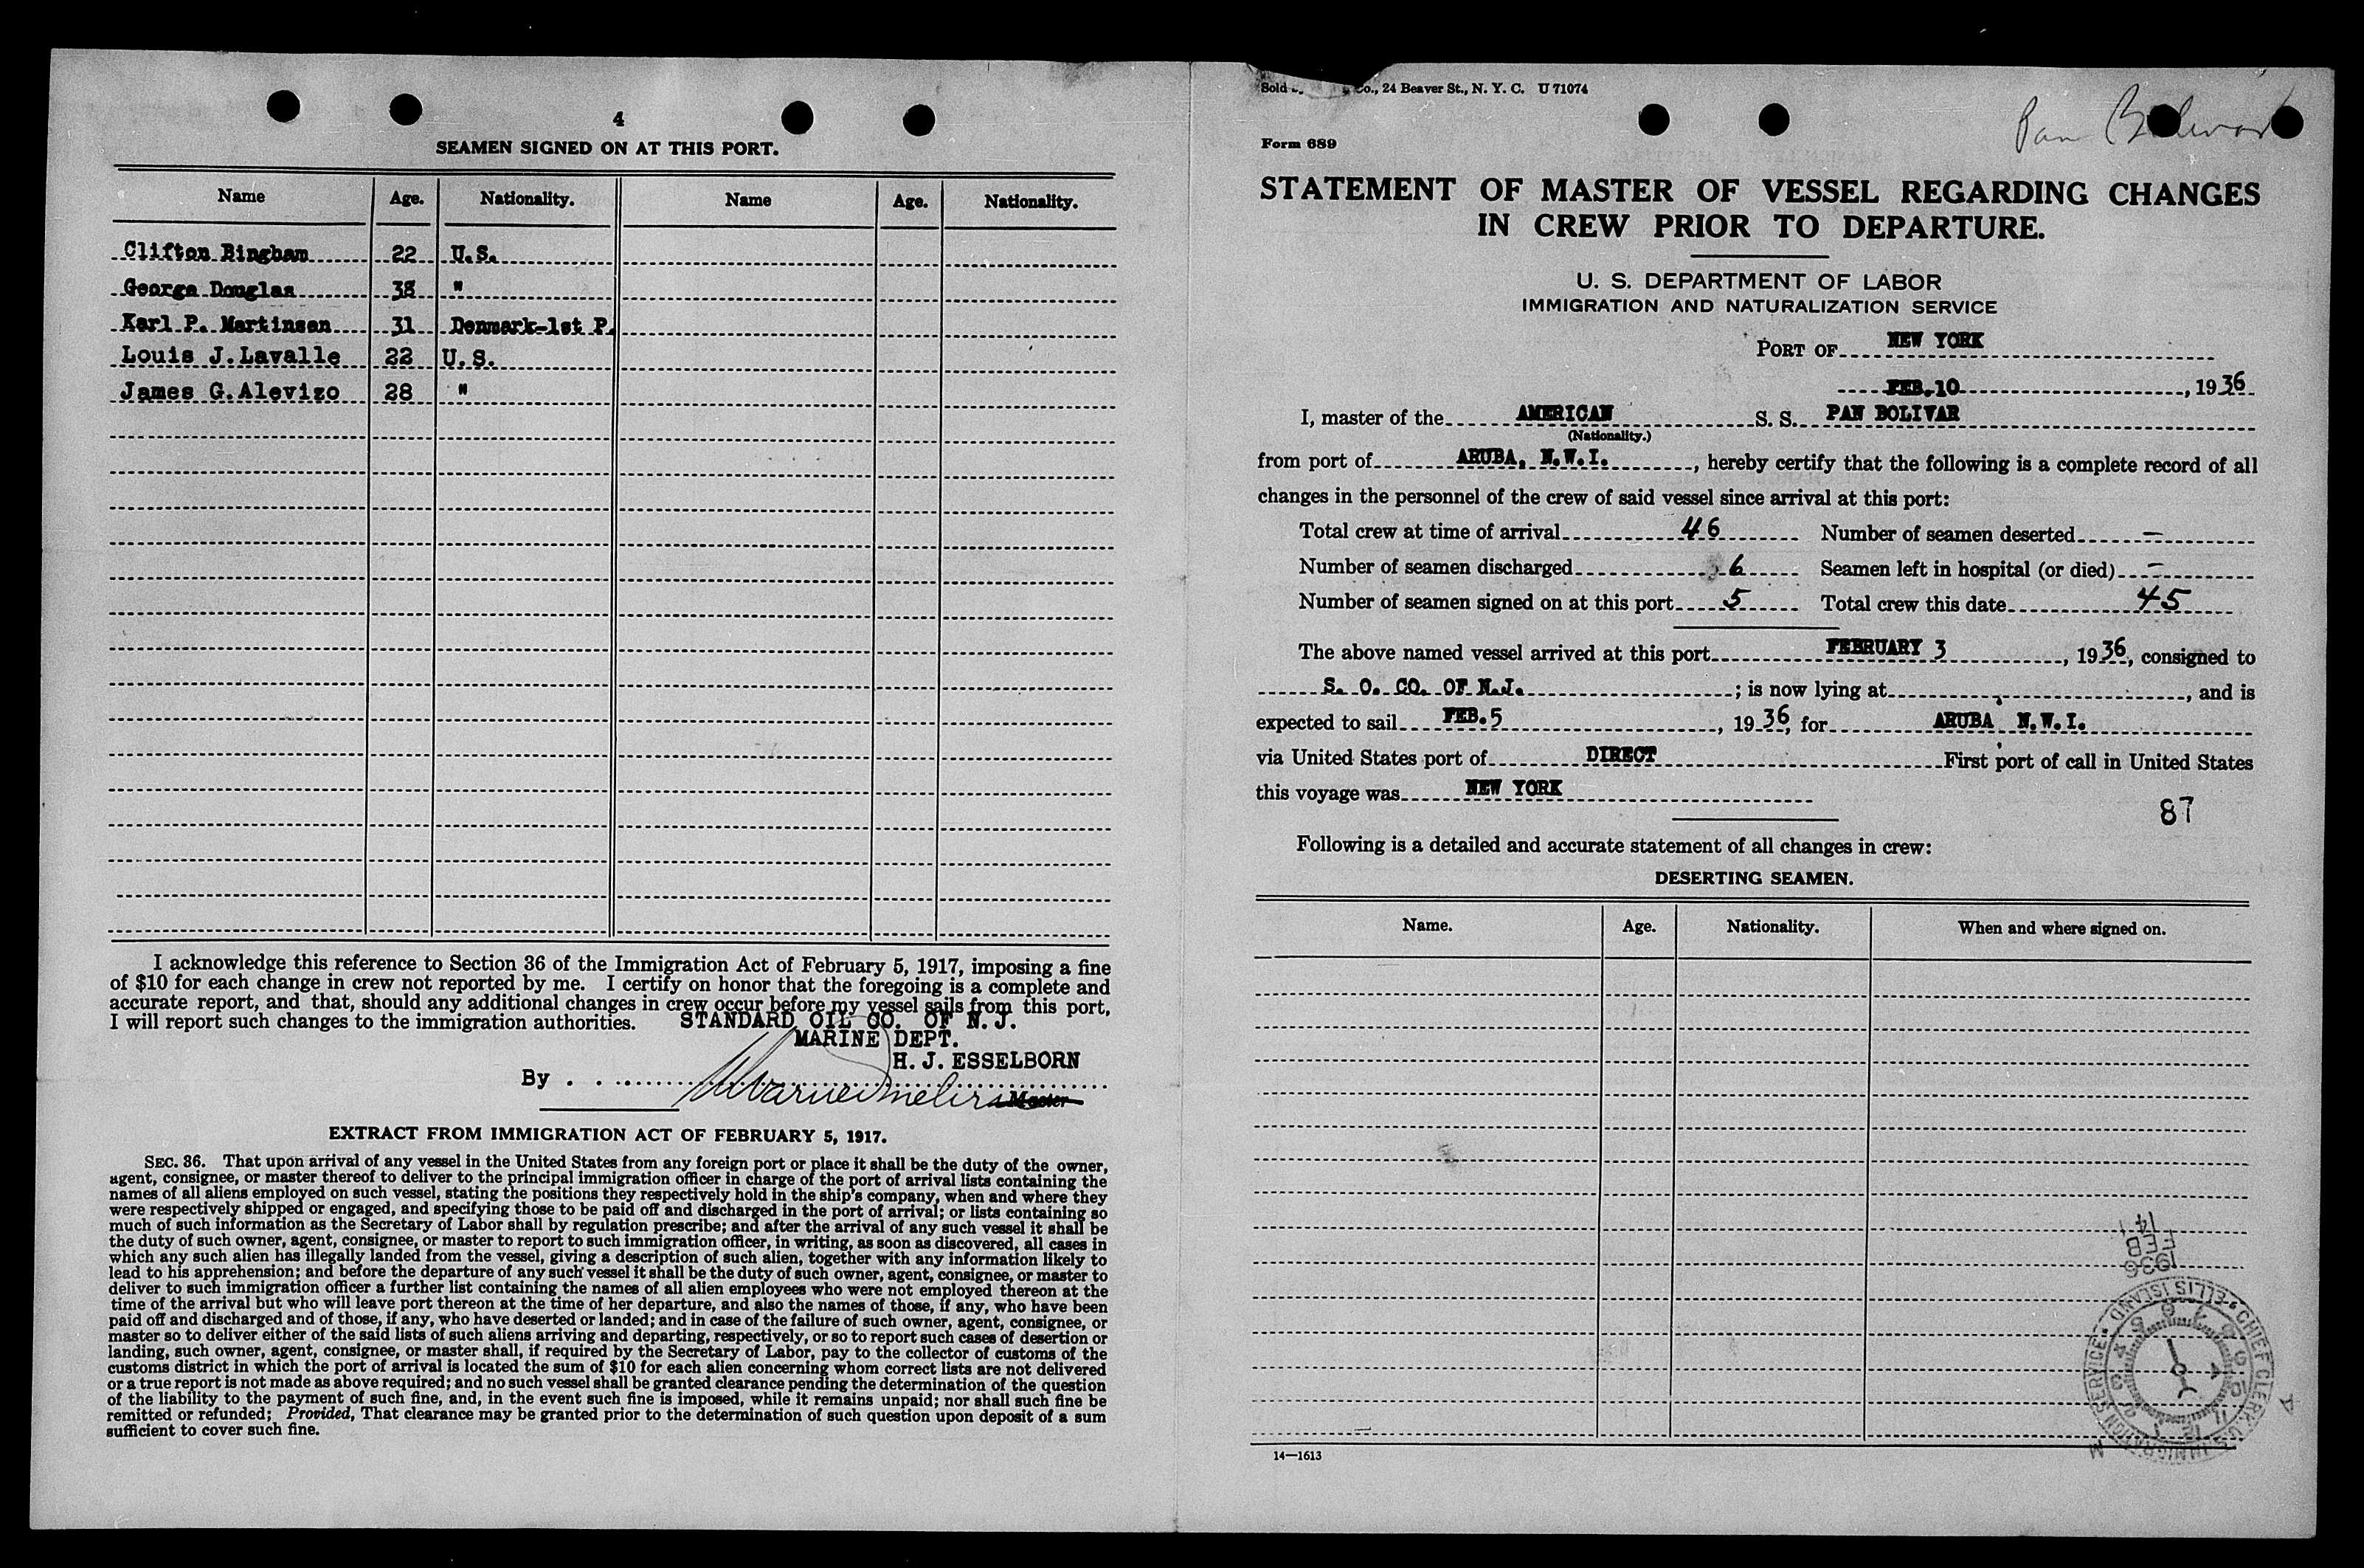 4
SEAMEN SIGNED ON AT THIS PORT.
Name Age. Nationality. Name Age. Nationality.
Clifton Bingham 22 U.S.
George Douglas 38 "
Karl P. Martinsen 31 Denmark-1st P.
Louis J. Lavalle 22 U.S.
James G. Alevizo 28 "
I acknowledge this reference to Section 36 of the Immigration Act of February 5, 1917, imposing a fine
of $10 for each change in crew not reported by me. I certify on honor that the foregoing is a complete and
accurate report, and that, should any additional changes in crew occur before my vessel sails from this port,
I will report such changes to the immigration authorities. STANDARD OIL CO. OF N. J.
MARINE DEPT.
H. J. ESSELBORN
By
Master
EXTRACT FROM IMMIGRATION ACT OF FEBRUARY 5, 1917.
SEC. 36. That upon arrival of any vessel in the United States from any foreign port or place it shall be the duty of the owner,
agent, consignee, or master thereof to deliver to the principal immigration officer in charge of the port of arrival lists containing the
names of all aliens employed on such vessel, stating the positions they respectively hold in the ship's company, when and where they
were respectively shipped or engaged, and specifying those to be paid off and discharged in the port of arrival; or lists containing so
much of such information as the Secretary of Labor shall by regulation prescribe; and after the arrival of any such vessel it shall be
the duty of such owner, agent, consignee, or master to report to such immigration officer, in writing, as soon as discovered, all cases in
which any such alien has illegally landed from the vessel, giving a description of such alien, together with any information likely to
lead to his apprehension; and before the departure of any such vessel it shall be the duty of such owner, agent, consignee, or master to
deliver to such immigration officer a further list containing the names of all alien employees who were not employed thereon at the
time of the arrival but who will leave port thereon at the time of her departure, and also the names of those, if any, who have been
paid off and discharged and of those, if any, who have deserted or landed; and in case of the failure of such owner, agent, consignee, or
master so to deliver either of the said lists of such aliens arriving and departing, respectively, or so to report such cases of desertion or
landing, such owner, agent, consignee, or master shall, if required by the Secretary of Labor, pay to the collector of customs of the
customs district in which the port of arrival is located the sum of $10 for each alien concerning whom correct lists are not delivered
or a true report is not made as above required; and no such vessel shall be granted clearance pending the determination of the question
of the liability to the payment of such fine, and, in the event such fine is imposed, while it remains unpaid; nor shall such fine be
remitted or refunded; Provided, That clearance may be granted prior to the determination of such question upon deposit of a sum
sufficient to cover such fine.
Sold Co., 24 Beaver St., N. Y. C. U 71074
Pan Bolivar
Form 689
STATEMENT OF MASTER OF VESSEL REGARDING CHANGES
IN CREW PRIOR TO DEPARTURE.
U. S. DEPARTMENT OF LABOR
IMMIGRATION AND NATURALIZATION SERVICE
PORT OF NEW YORK
FEB. 10, 1936
I, master of the AMERICAN S. S. PAN BOLIVAR
(Nationality.)
from port of ARUBA, N.W.I., hereby certify that the following is a complete record of all
changes in the personnel of the crew of said vessel since arrival at this port:
Total crew at time of arrival 46 Number of seamen deserted —
Number of seamen discharged 6 Seamen left in hospital (or died) —
Number of seamen signed on at this port 5 Total crew this date 45
The above named vessel arrived at this port FEBRUARY 3, 1936, consigned to
S. O. CO. OF N.J.; is now lying at , and is
expected to sail FEB. 5, 1936, for ARUBA, N.W.I.
via United States port of DIRECT First port of call in United States
this voyage was NEW YORK
87
Following is a detailed and accurate statement of all changes in crew:
DESERTING SEAMEN.
Name. Age. Nationality. When and where signed on.
1936
FEB
14
CHIEF CLERK U.S. IMMIGRATION SERVICE ELLIS ISLAND
14—1613